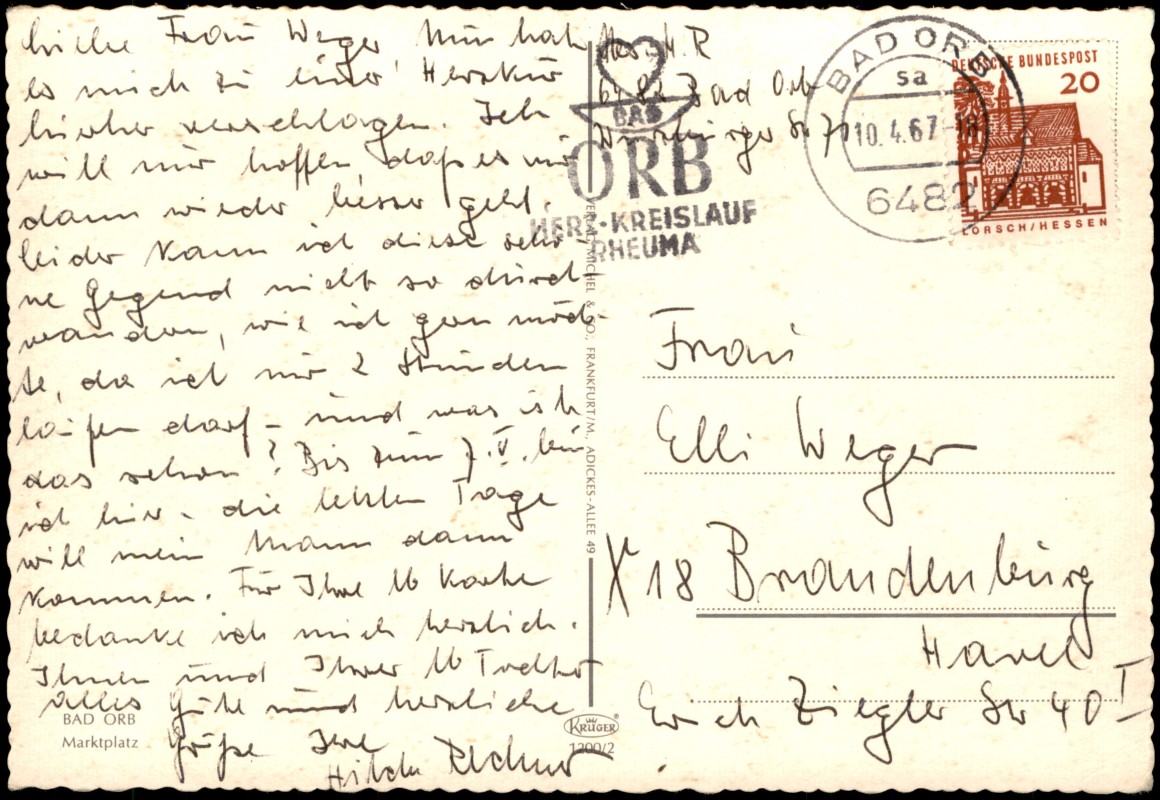 Liebe Frau Weger! Nun hat
es mich zu einer Herzkur
hierher verschlagen. Ich
will nur hoffen, daß es mir
dann wieder besser geht.
Leider kann ich diese schö-
ne Gegend nicht so durch-
wandern, wie ich gern möch-
te, da ich nur 2 Stunden
laufen darf – und was ist
das schon? Bis zum 7. V. bin
ich hier, die letzten Tage
will mein Mann dann
kommen. Für Ihre lb Karte
bedanke ich mich herzlich.
Ihnen und Ihrer lb Tochter
alles Gute und herzliche
Grüße Ihre
Hilde
BAD ORB
Marktplatz
VERLAG MICHEL & CO., FRANKFURT/M., ADICKES-ALLEE 49
KRÜGER
1200/2
6482 Bad Orb
BAD
ORB
HERZ-KREISLAUF
RHEUMA
BAD ORB
sa
10.4.67-18
6482
DEUTSCHE BUNDESPOST
20
LORSCH/HESSEN
Frau
Elli Weger
X 18 Brandenburg
Havel
Erich Ziegler Str 40 I